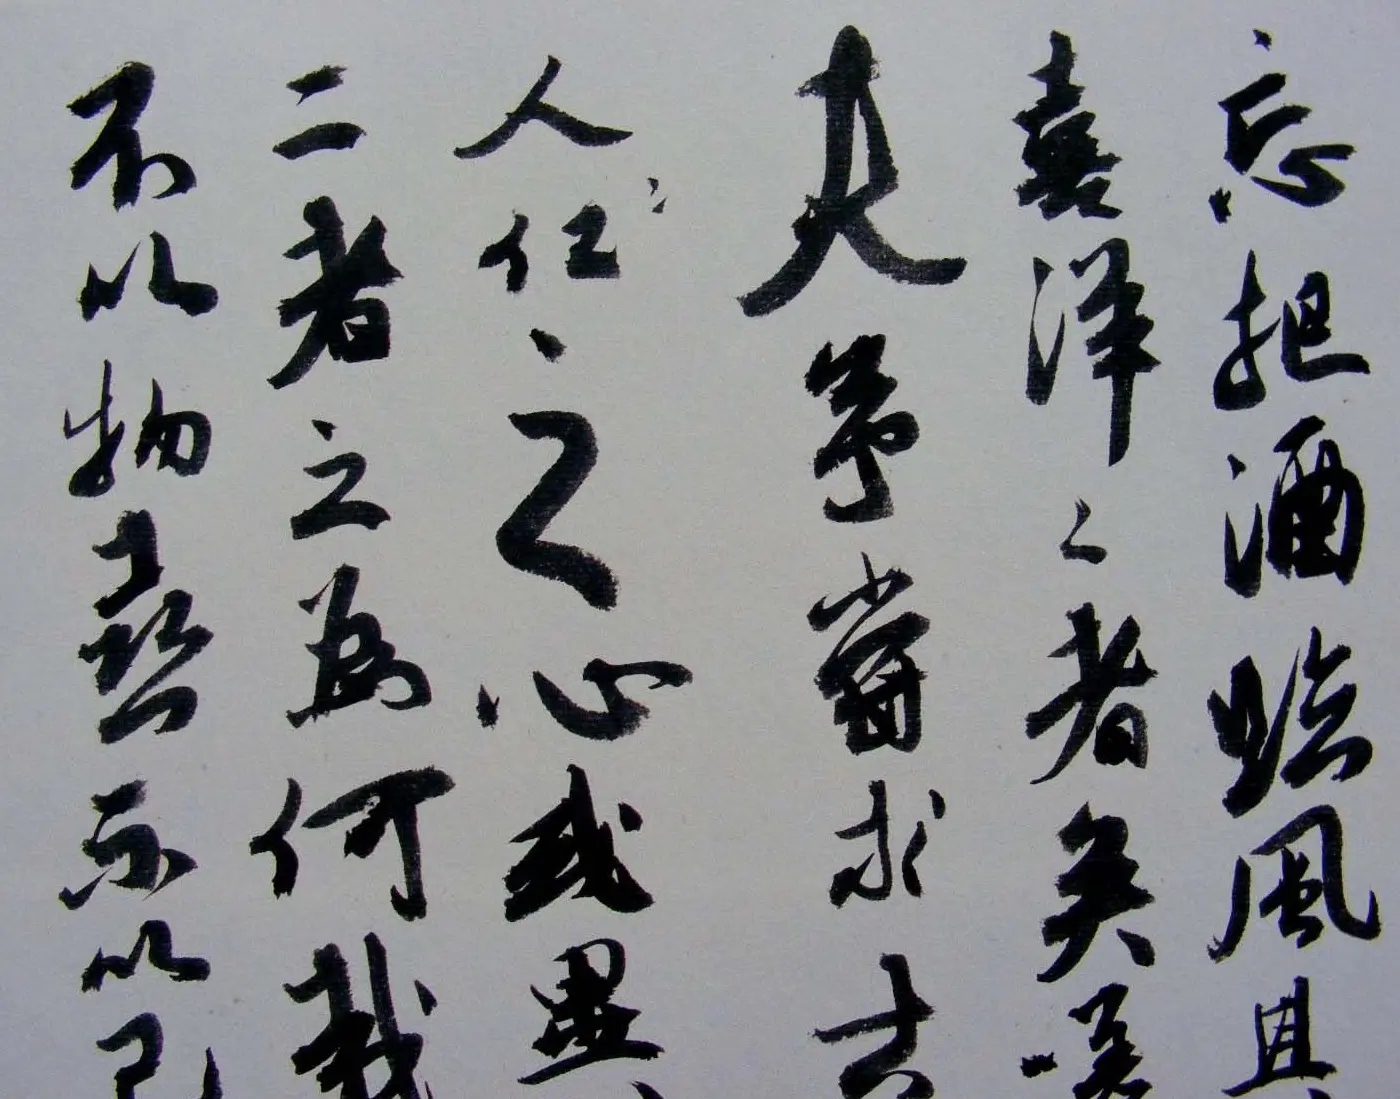 忘把酒臨風其
喜洋〻者矣嗟
夫予嘗求古
人仁之心或異
二者之為何哉
不以物喜不以己